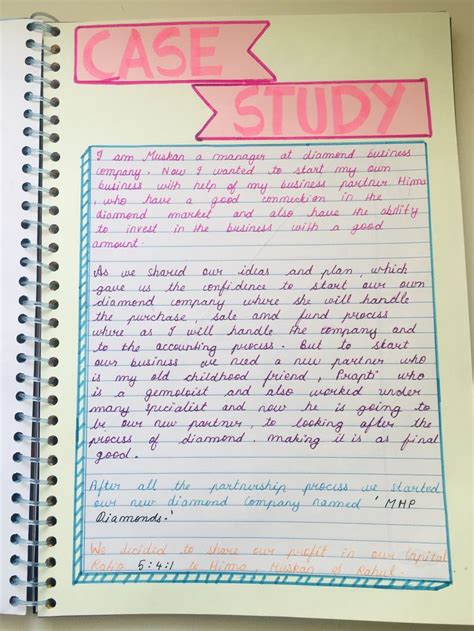 CASE
STUDY
I am Muskan a manager at diamond business
company. Now I wanted to start my own
business with help of my business partner Hima
, who have a good connection in the
diamond market and also have the ability
to invest in the business with a good
amount.
As we shared our ideas and plan, which
gave us the confidence to start our own
diamond company where she will handle
the purchase, sale and fund process
where as I will handle the company and
to the accounting process. But to start
our business we need a new partner who
is my old childhood friend, Prapti who
is a gemoloist and also worked under
many specialist and now he is going to
be our new partner, to looking after the
process of diamond making it is as final
good.
After all the partnership process we started
our new diamond Company named 'MHP
Diamonds.'
We decided to share our profit in our Capital
Ratio 5:4:1 to Hima, Muskan & Rahul.